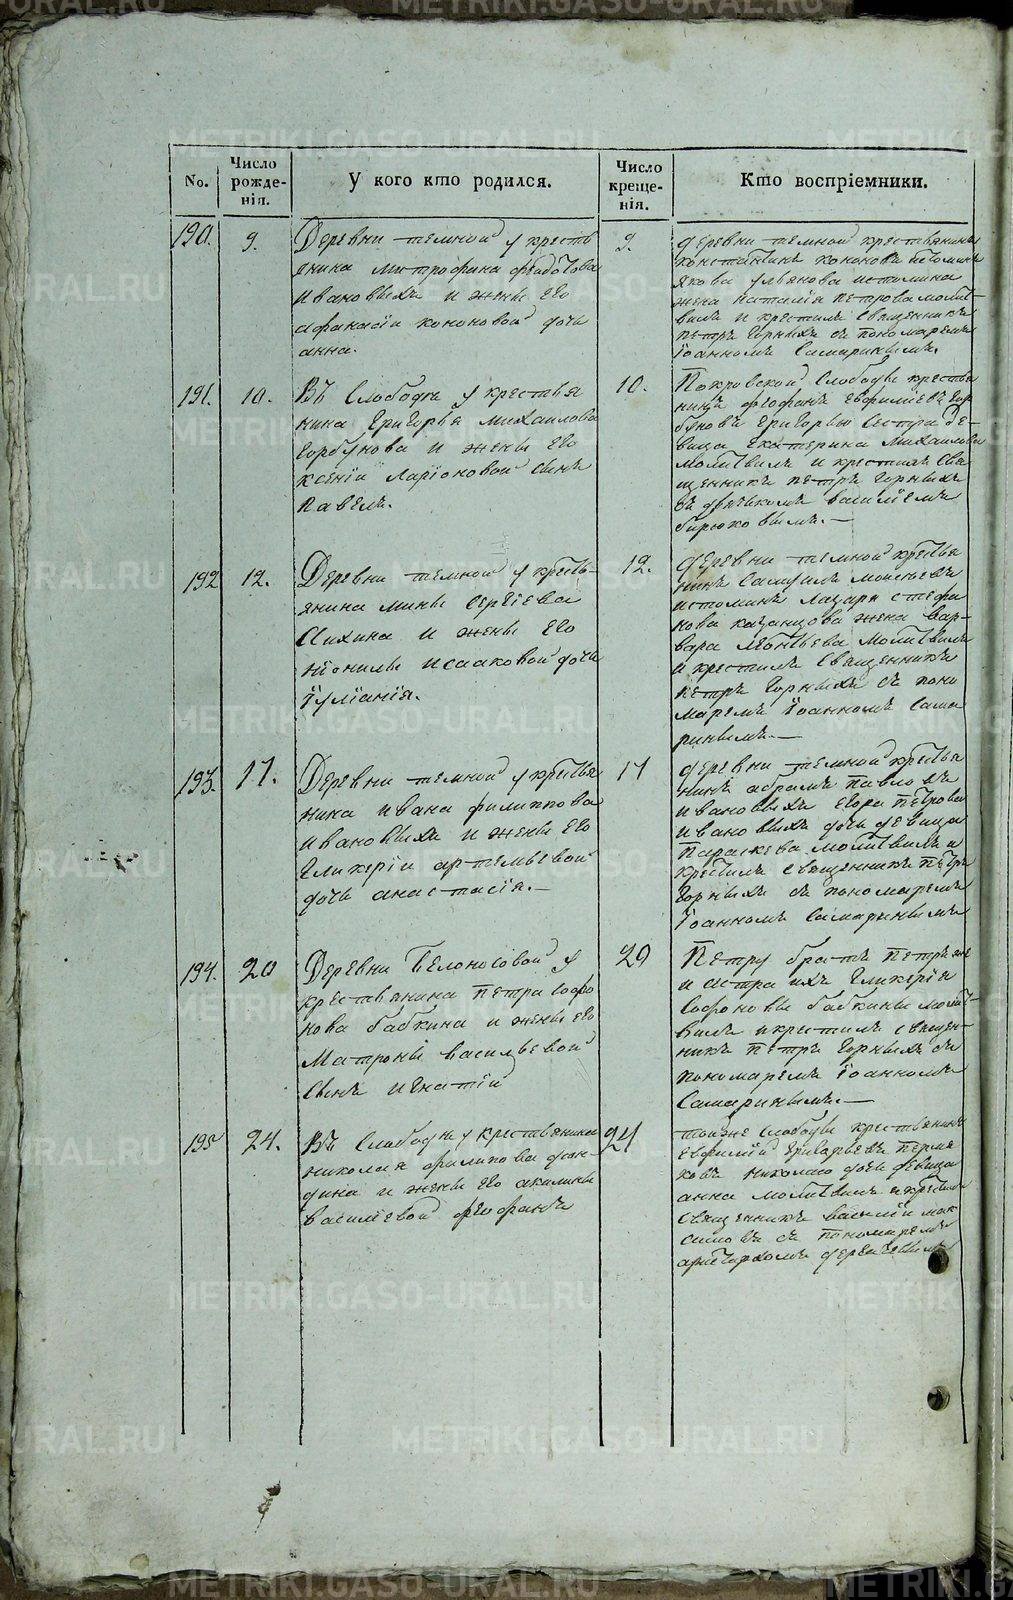 No.
Число рожденія.
У кого кто родился.
Число крещенія.
Кто воспріемники.
190.
9.
Деревни темной у кресть
янина митрофана федотова
ивановыхъ и жены его
афанасіи кононовой дочь
анна.
9.
деревни темной крестьянинъ
константинъ кононовъ истоминъ
якова ульянова истомина
жена наталія петрова молит-
вилъ и крестилъ священникъ
петръ горныхъ съ пономаремъ
Іоанномъ Самаринымъ.
191.
10.
Въ Слободѣ у крестья
нина григорья михаилова
горбунова и жены его
ксеніи ларіоновой сынъ
павелъ.
10.
Покровской Слободы крестья
нинъ феофанъ евфиміевъ гор
буновъ григорью сестра де-
вица екатерина михаилова
молитвилъ и крестилъ свя
щенникъ петръ горныхъ
съ дьячькомъ василіемъ
бирюковымъ.—
192
12.
Деревни темной у кресть-
янина мины сергіева
жены его
исааковой дочь
Іуліанія.
12.
деревни темной крестья
нинъ самуилъ моисеевъ
истоминъ лазаря стефа
нова казанцова жена вар-
вара леонтьева молитвилъ
и крестилъ священникъ
петръ горныхъ съ поно
маремъ Іоанномъ Сама
ринымъ.—
193.
17.
Деревни темной у крестья
нина ивана филиппова
ивановыхъ и жены его
гликеріи артемьевой
дочь анастасія.—
17
деревни темной крестья
нинъ абрамъ павловъ
ивановыхъ егора петрова
ивановыхъ дочь девица
Параскева молитвилъ и
крестилъ священникъ петръ
горныхъ съ пономаремъ
Іоанномъ Самаринымъ
194.
20
Деревни Белоносовой у
крестьянина петра софо
нова бабкина и жены его
Матроны васильевой
сынъ игнатій
20
Петру братъ Петръ же
и сестра ихъ гликерія
Софоновы бабкины молит-
вилъ и крестилъ священ-
никъ петръ горныхъ съ
пономаремъ Іоанномъ
Самаринымъ.—
195
24.
Въ Слободѣ у крестьянина
николая филипова
и жены его акилины
василіевой феофанъ
24
тоиже слободы крестьянинъ
евфимій григорьевъ
николаю дочь девица
анна молитвилъ и крестилъ
священникъ василій мак
симовъ съ пономаремъ
аристархомъ
METRIKI.GASO-URAL.RU